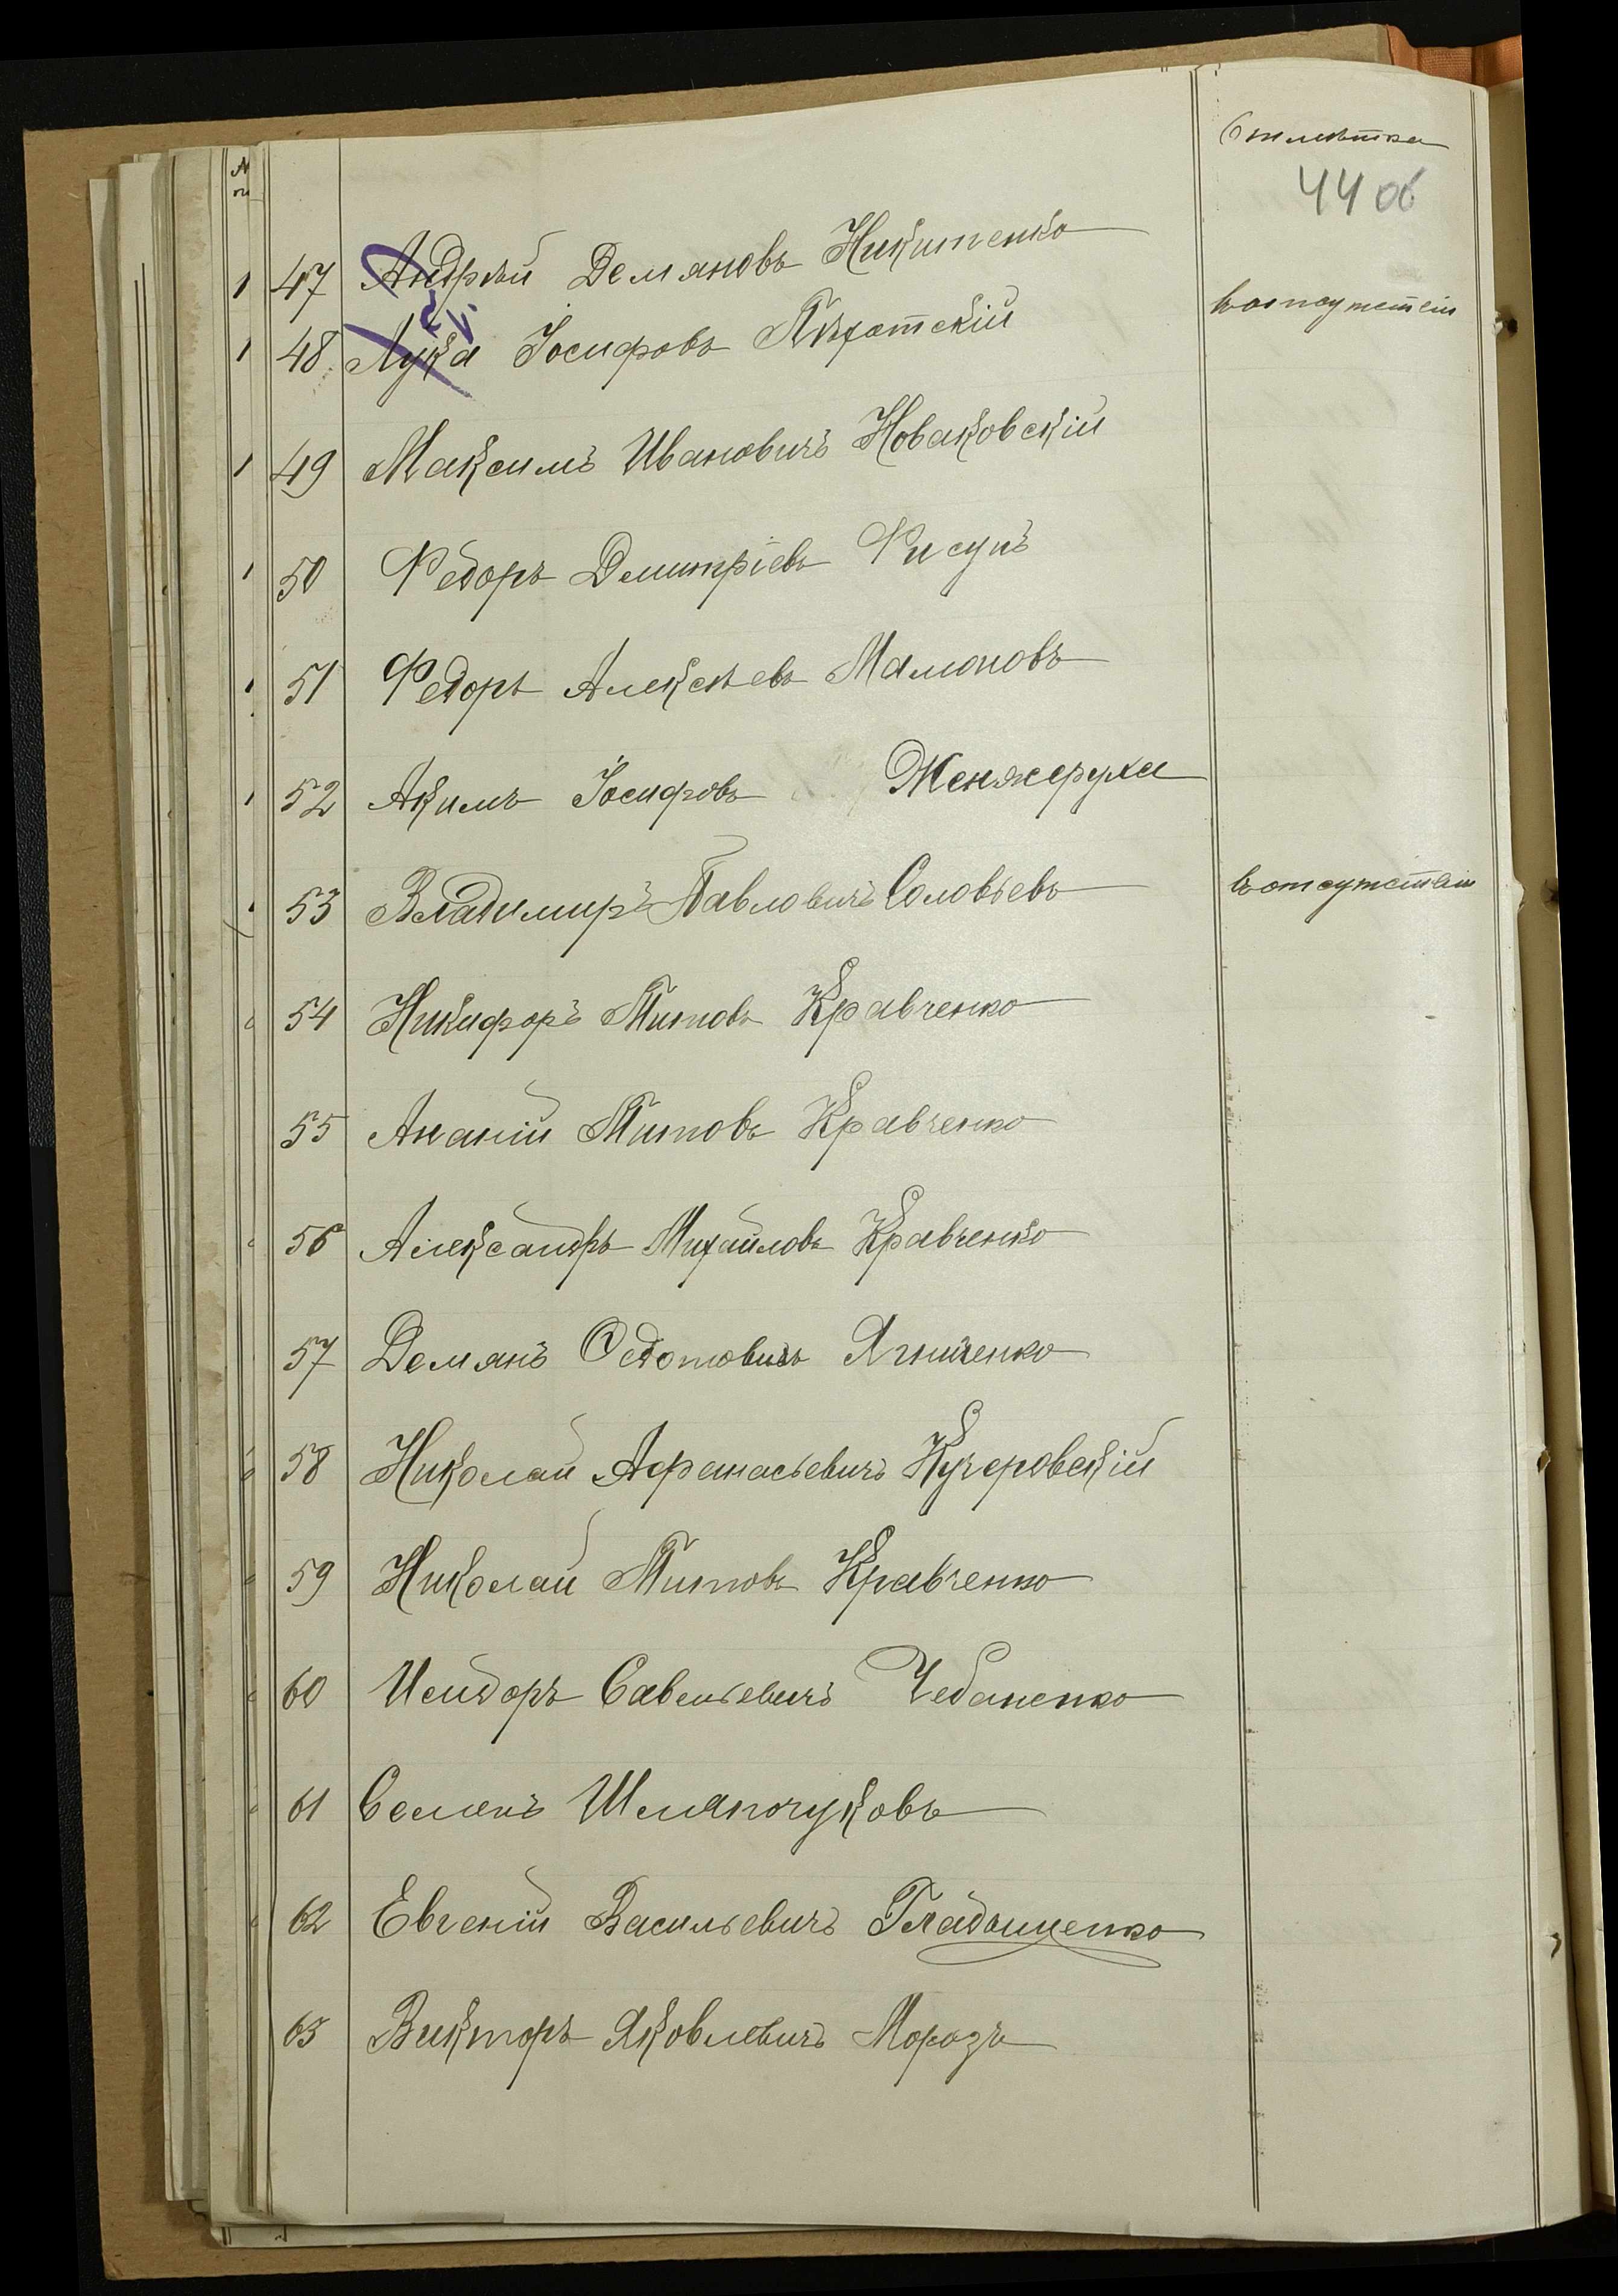 Отмѣтка
44 об
47 Андрѣй Демяновъ Никитенко
48 Лука Іосифовъ Пѣхотскій
49 Максимъ Ивановичъ Новаковскій
50 Федоръ Дмитріевъ Фисунъ
51 Федоръ Алексѣевъ Мамоновъ
52 Акимъ Іосифовъ Женжеруха
53 Владимиръ Павловичъ Соловьевъ въ отсутствіи
54 Никифоръ Титовъ Кравченко
55 Ананій Титовъ Кравченко
56 Александръ Михайловъ Кравченко
57 Демянъ Федотовичъ Ягниченко
58 Николай Афанасьевичъ Кучеровскій
59 Николай Титовъ Кравченко
60 Исидоръ Савельевичъ Чебаненко
61 Семенъ Шемянчуковъ
62 Евгеній Васильевичъ Гладыщенко
63 Викторъ Яковлевичъ Морозъ